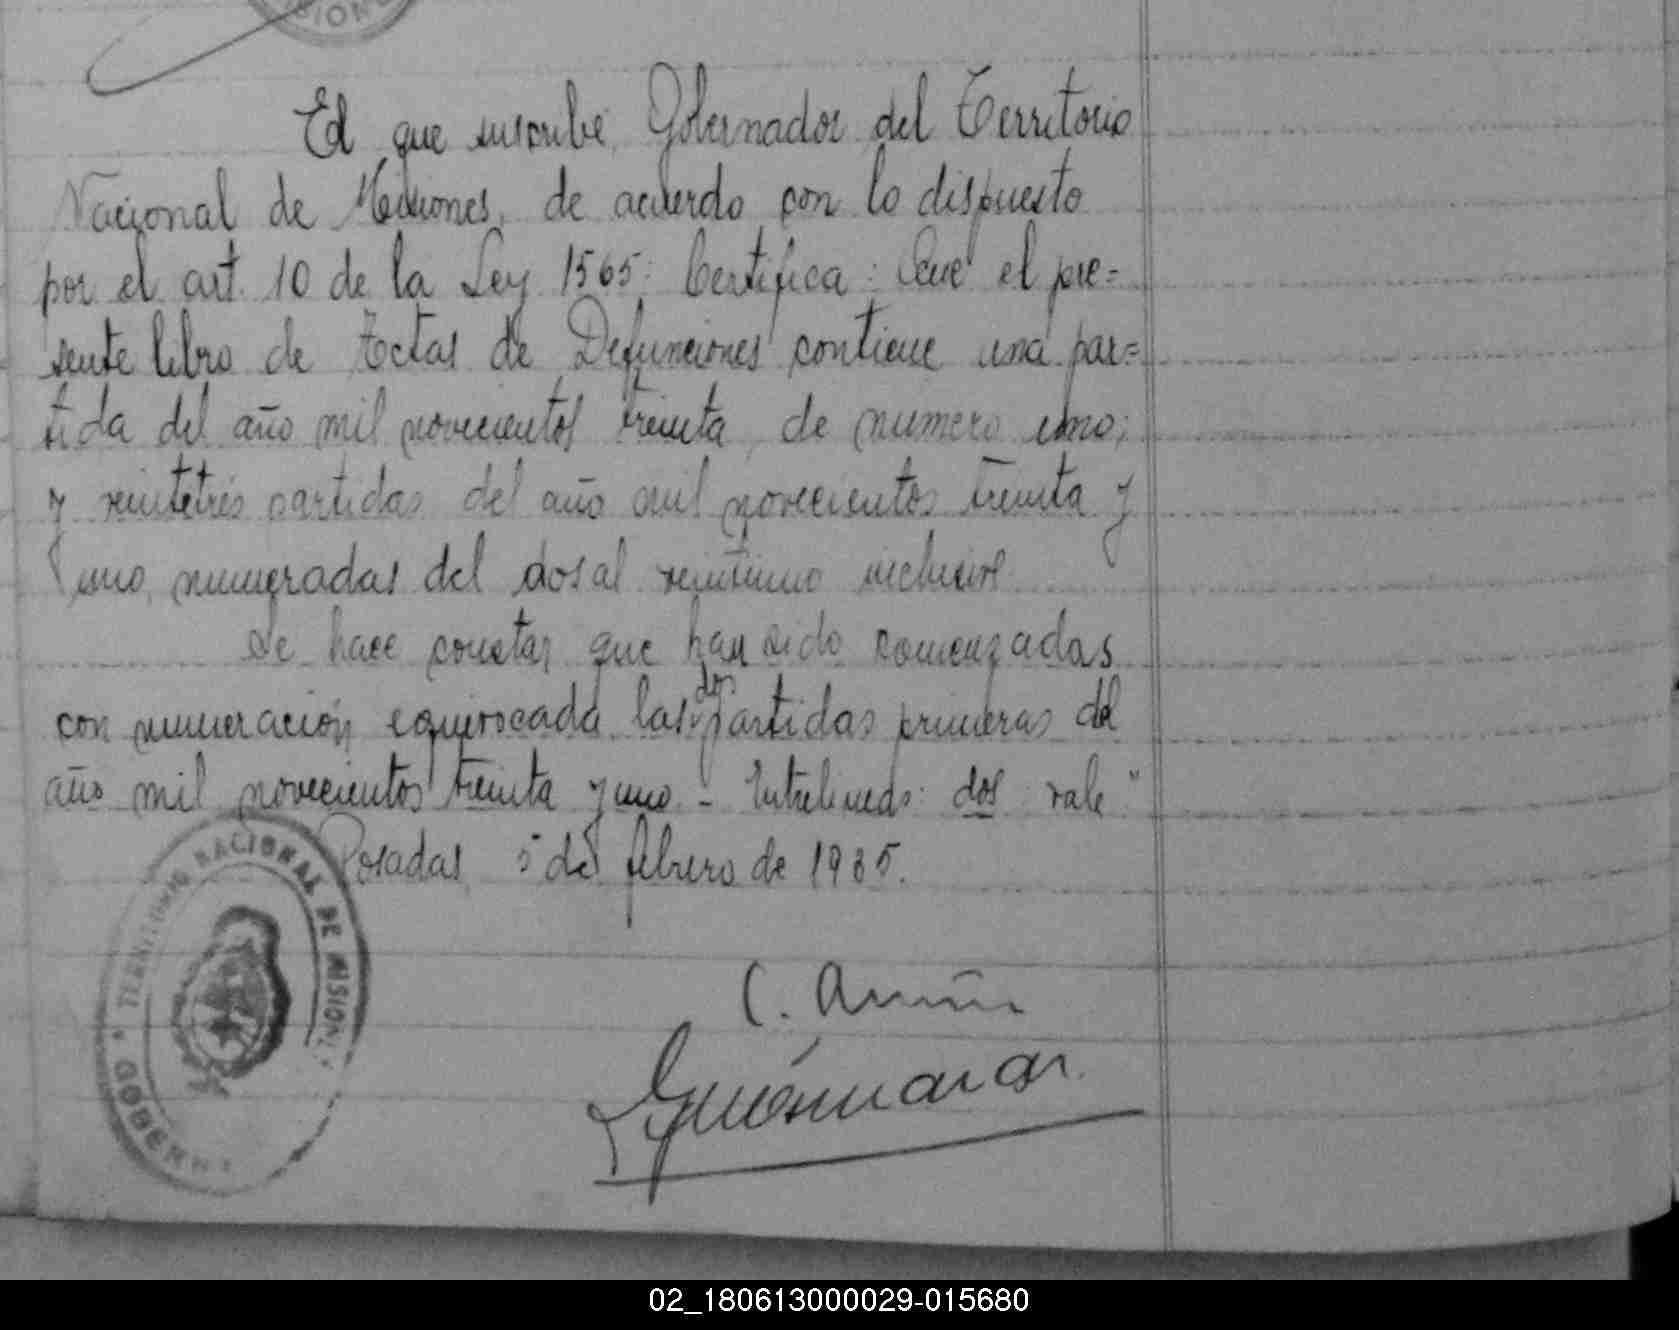 SIONE
El que suscribe, Gobernador del Territorio
Nacional de Misiones, de acuerdo con lo dispuesto
por el art. 10 de la Ley 1565: Certifica: Que el pre=
sente libro de Actas de Defunciones contiene una par=
tida del año mil novecientos treinta, de numero uno;
y veintetrés partidas del año mil novecientos treinta y
uno, numeradas del dos al veintiuno inclusive.
Se hace constar que han sido comenzadas
dos
con numeración equivocada las partidas primeras del
año mil novecientos treinta y uno - Entrelineado: dos vale"
Posadas, 5 de febrero de 1935.
TERRITORIO NACIONAL DE MISIONES
GOBERN
C.
02_180613000029-015680